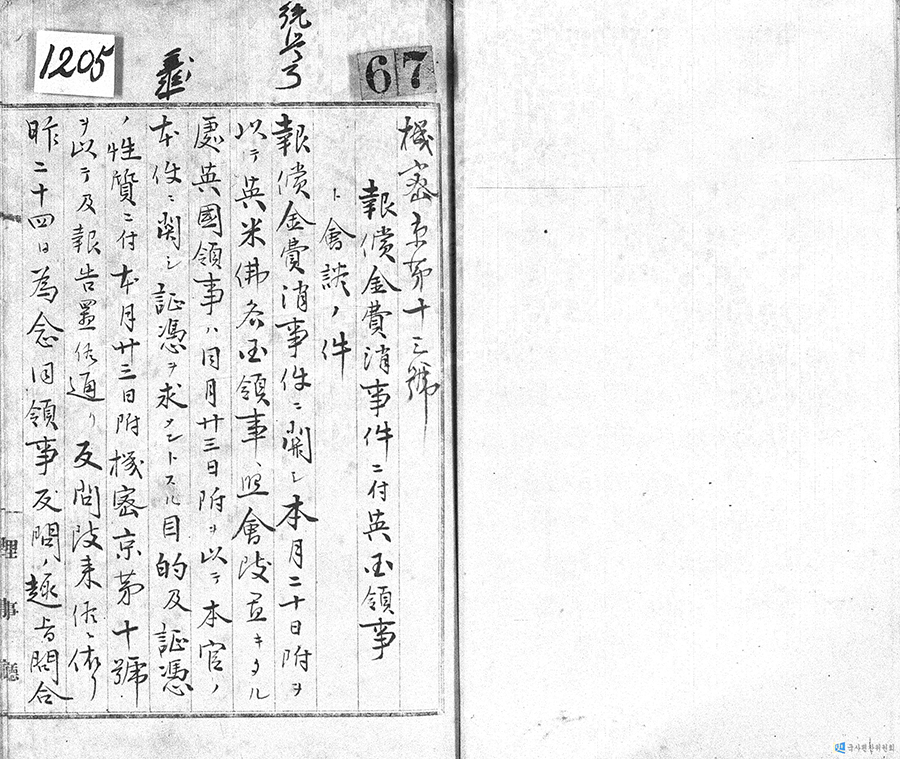 67
1205
機密京第十三號
報償金費消事件ニ付英国領事
ト會談ノ件
報償金費消事件ニ関シ本月二十日附ヲ
以テ英米佛各国領事ニ照會致置キタル
處英國領事ハ同月廿三日附ヲ以テ本官ノ
本件ニ関シ証憑ヲ求メントスル目的及証憑
ノ性質ニ付本月廿三日附機密京第十號
ヲ以テ及報告置候通リ反問致来候ニ依リ
昨二十四日為念同領事反問ノ趣旨問合
理事廳
국사편찬위원회